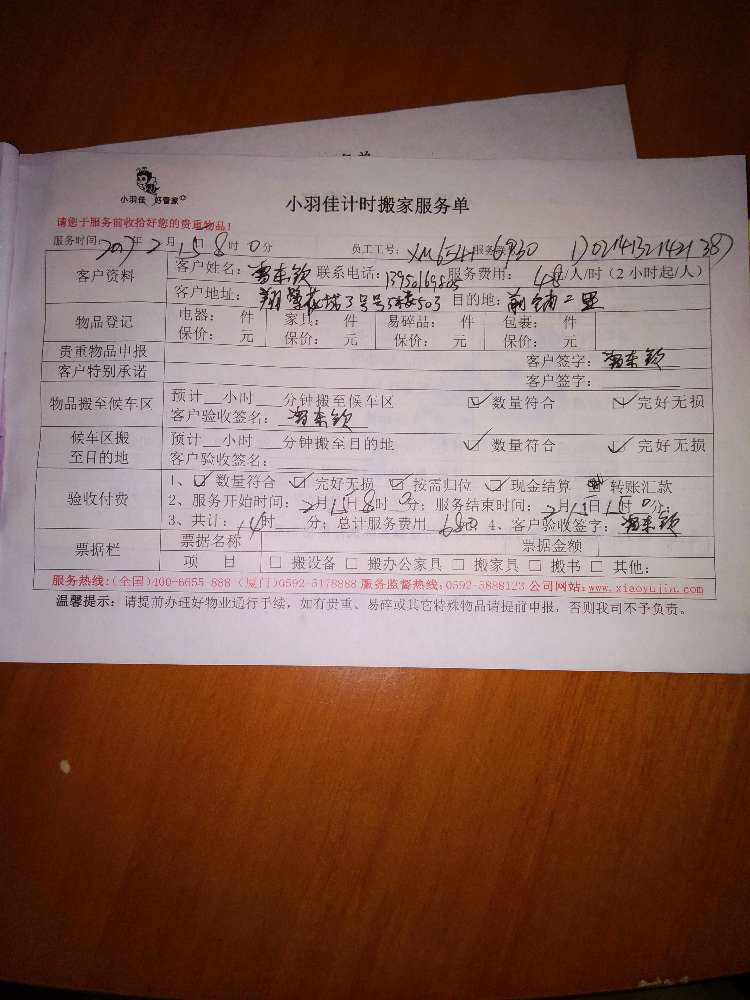 小羽佳 好管家
小羽佳计时搬家服务单
请您于服务前收拾好您的贵重物品！
服务时间：2017年2月15日8时0分 员工工号：
客户资料 客户姓名： 联系电话：13950169805 服务费用：48/人/时（2小时起/人）
客户地址： 3号 503 目的地：前埔二里
物品登记 电器： 件 家具： 件 易碎品： 件 包裹： 件
保价： 元 保价： 元 保价： 元 保价： 元
贵重物品申报 客户签字：
客户特别承诺 客户签字：
物品搬至候车区 预计__小时__分钟搬至候车区 ☑数量符合 ☑完好无损
客户验收签名：
候车区搬至目的地 预计__小时__分钟搬至目的地 ☑数量符合 ☑完好无损
客户验收签名：
验收付费 1、☑数量符合 ☑完好无损 ☑按需归位 ☑现金结算 转账汇款
2、服务开始时间：2月15日8时0分；服务结束时间：2月15日15时0分；
3、共计：14时__分；总计服务费用 680 4、客户验收签字：
票据栏 票据名称 票据金额
项 目 □ 搬设备 □ 搬办公家具 □ 搬家具 □ 搬书 □ 其他：
服务热线：(全国)400-6655 888 (厦门)0592-5178888 服务监督热线：0592-5888123 公司网站：www.xiaoyujia.com
温馨提示：请提前办理好物业通行手续，如有贵重、易碎或其它特殊物品请提前申报，否则我司不予负责。